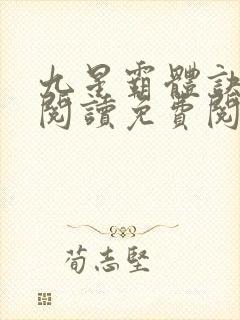 九星霸體訣
閱讀免費閱
荀志堅